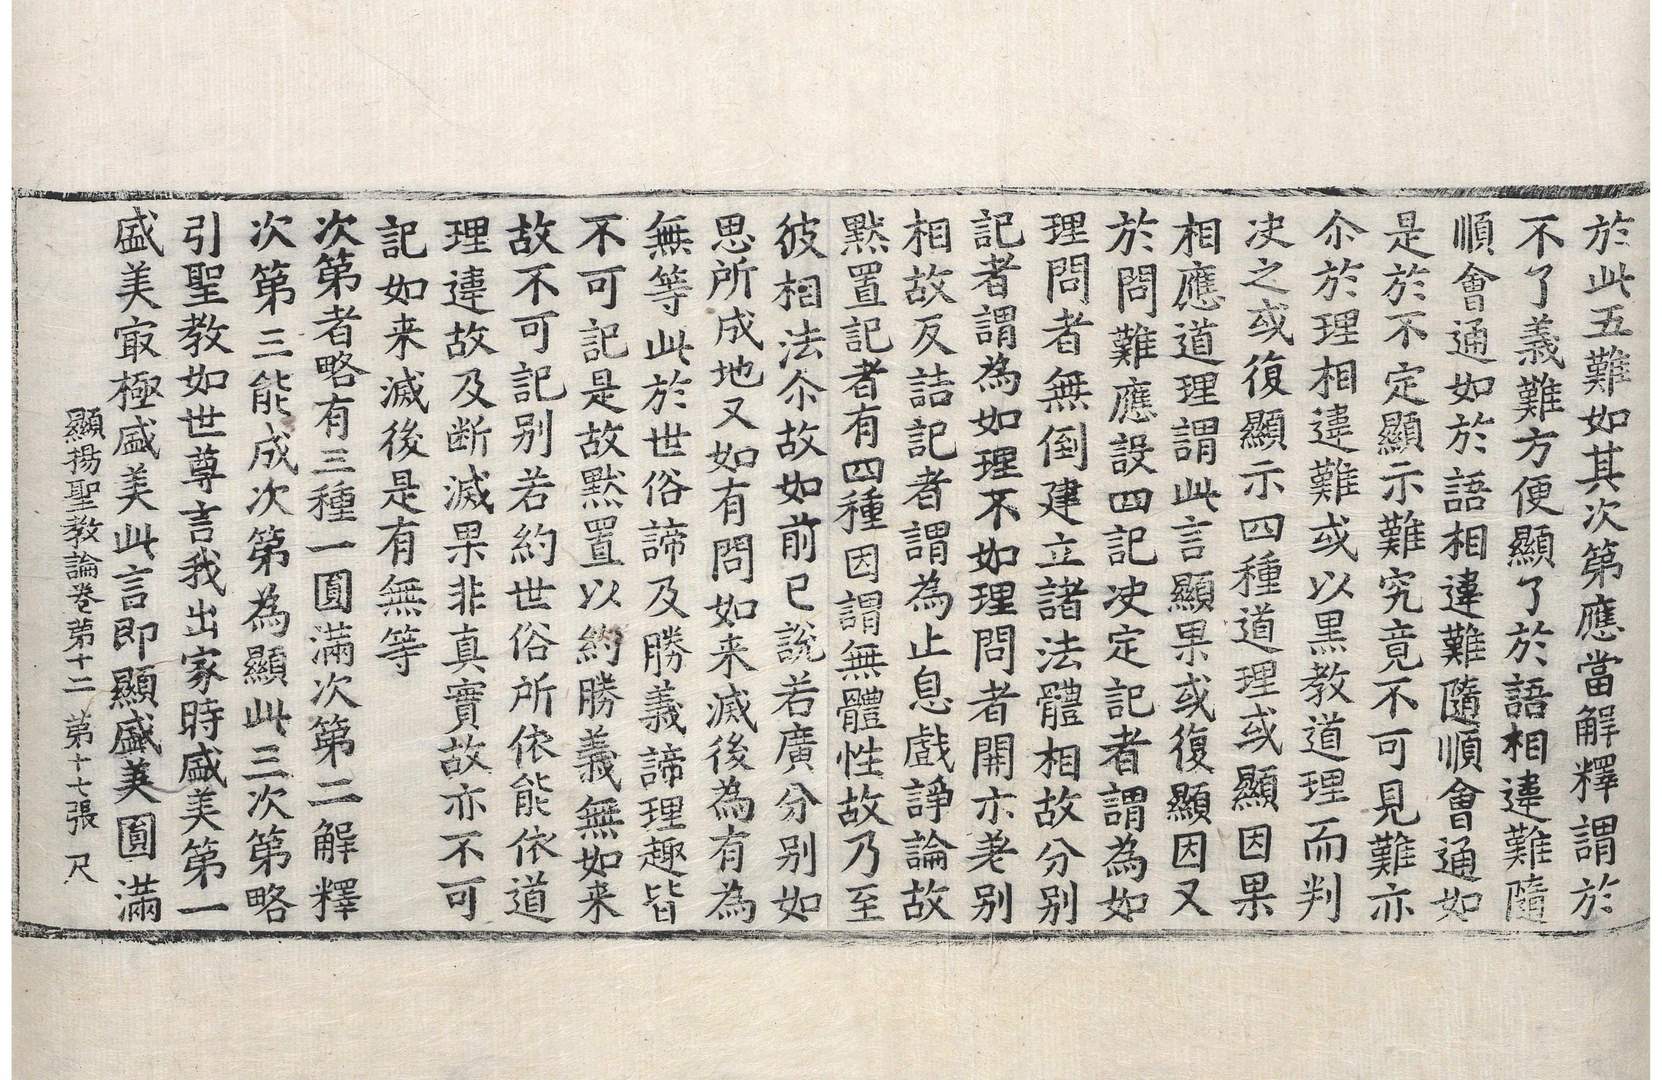 於此五難如其次第應當解釋謂於
不了義難方便顯了於語相違難隨
順會通如於語相違難隨順會通如
是於不定顯示難究竟不可見難亦
尒於理相違難或以黒教道理而判
决之或復顯示四種道理或顯因果
相應道理謂此言顯果或復顯因又
於問難應設四記决定記者謂為如
理問者無倒建立諸法體相故分別
記者謂為如理不如理問者開示差别
相故反詰記者謂為止息戲諍論故
黙置記者有四種因謂無體性故乃至
彼相法尒故如前已說若廣分别如
思所成地又如有問如来滅後為有為
無等此於世俗諦及勝義諦理趣皆
不可記是故黙置以約勝義無如来
故不可記别若約世俗所依能依道
理違故及断滅果非真實故亦不可
記如来滅後是有無等
次第者略有三種一圓滿次第二解釋
次第三能成次第為顯此三次第略
引聖教如世尊言我出家時盛美第一
盛美㝡極盛美此言即顯盛美圓滿
顯揚聖教論卷第十二 第十七張 尺